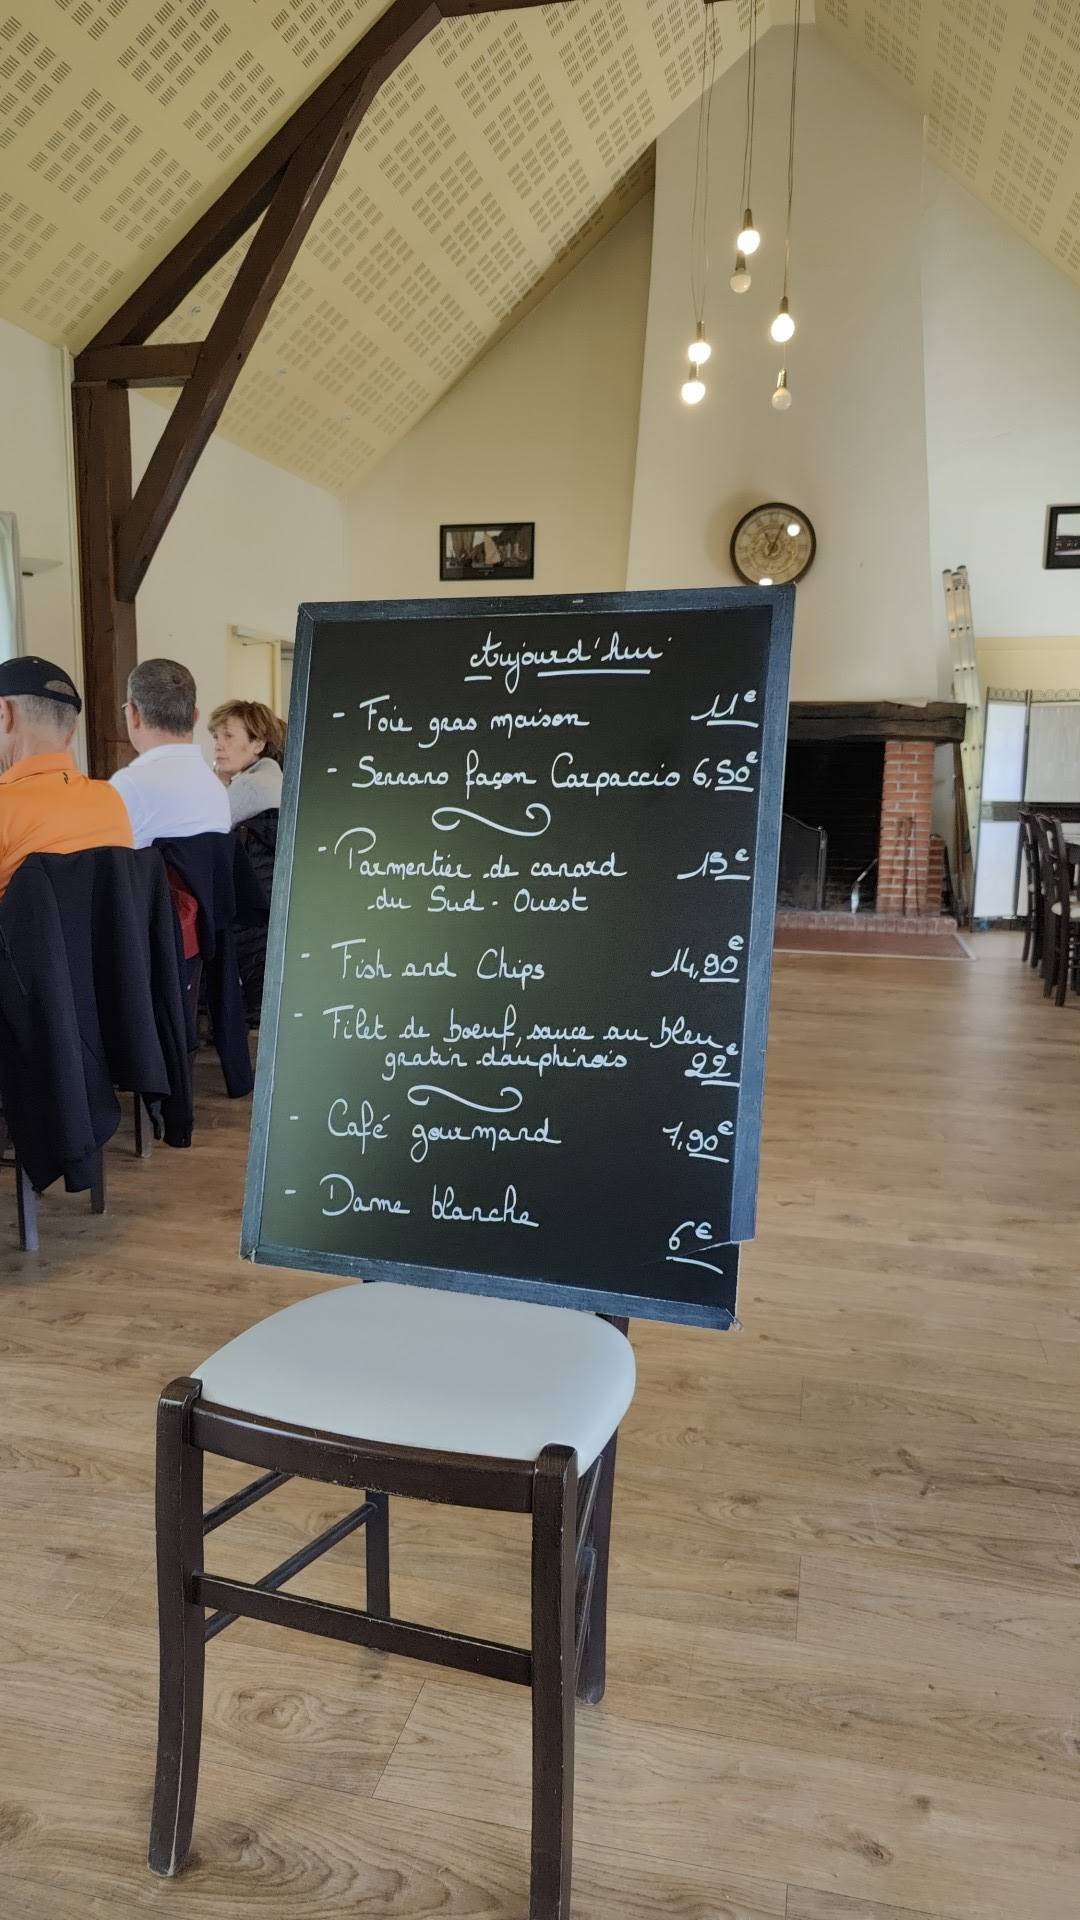 Aujourd'hui
- Foie gras maison 11€
- Serrano façon Carpaccio 6,50€
- Parmentier de canard 15€
du Sud-Ouest
- Fish and Chips 14,90€
- Filet de boeuf, sauce au bleu
gratin dauphinois 22€
- Café gourmand 7,90€
- Dame blanche
6€